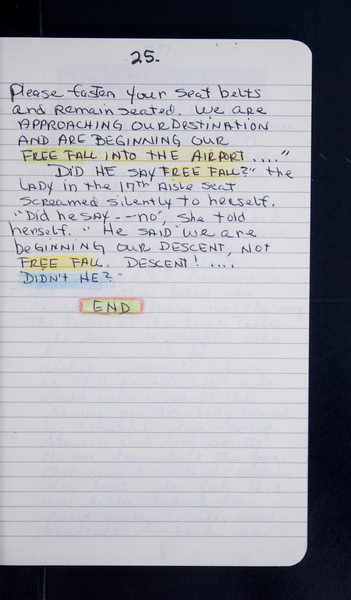 25.
Please fasten your seat belts
and remain seated. We are
APPROACHING OUR DESTINATION
AND ARE BEGINNING OUR
FREE FALL INTO THE AIRPORT...."
DID HE SAY FREE FALL?" the
LADY in the 17th Aisle seat
screamed silently to herself.
"Did he SAY -- no", she told
herself. "He SAID we are
beGINNING OUR DESCENT, NOT
FREE FALL. DESCENT! ....
DIDN'T HE?
END